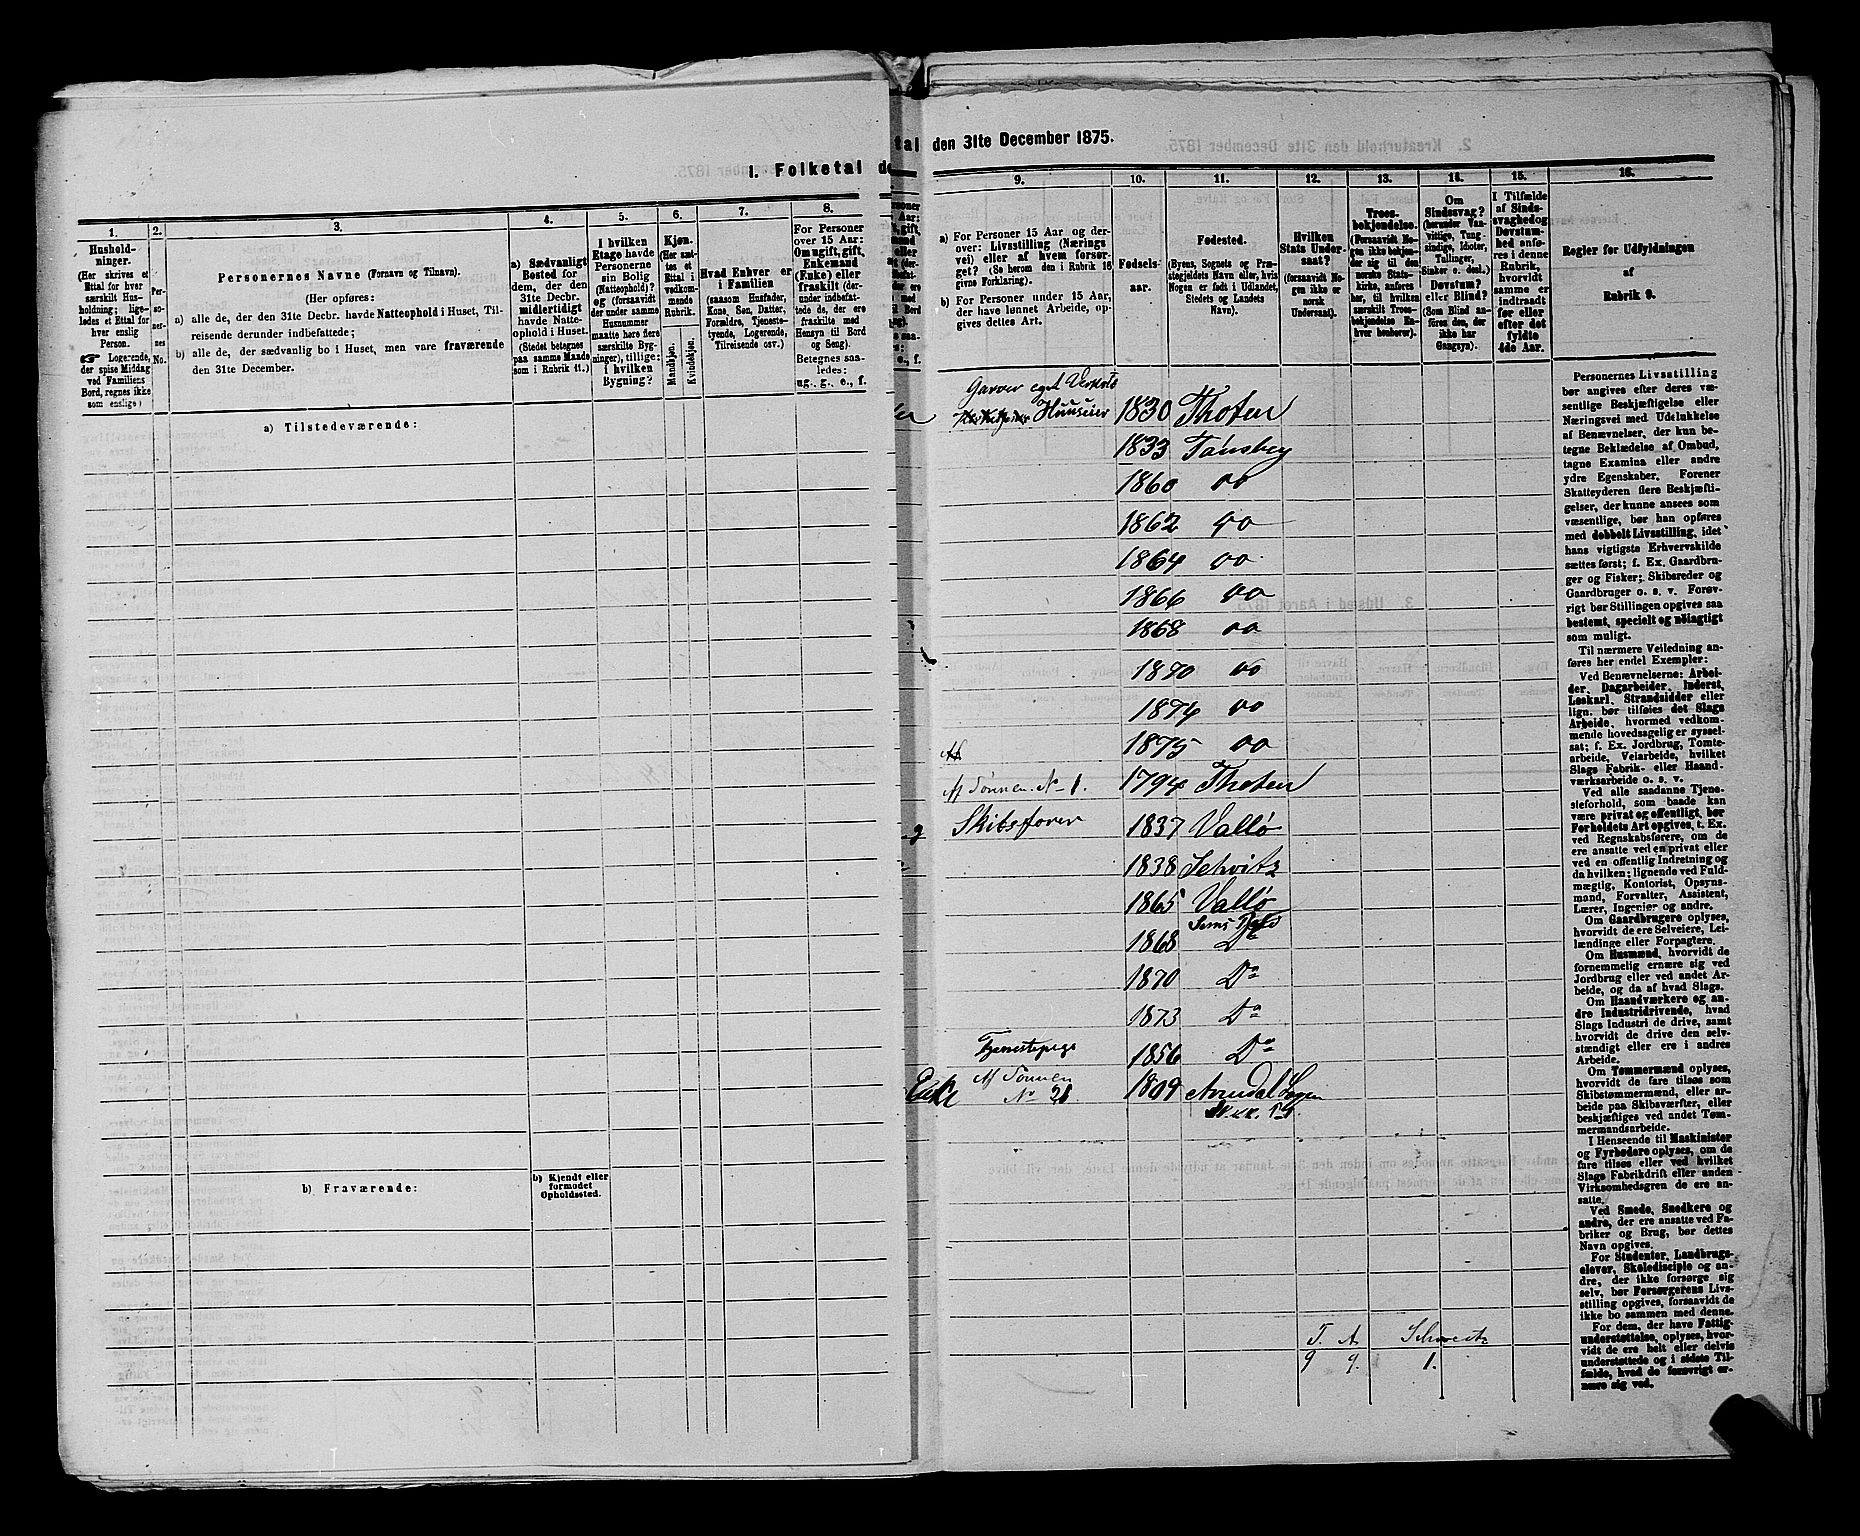 1. Folketal de
1.
2.
3.
4.
5.
6.
7.
8.
Hushold-
ninger.
(Her skrives et
Ettal for hver
særskilt Hus-
holdning; lige-
ledes et Ettal for
hver enslig
Person.
☞ Logerende,
der spise Middag
ved Familiens
Bord, regnes ikke
som enslige)
Per-
so-
ner-
nes
No.
Personernes Navne (Fornavn og Tilnavn).
(Her opføres:
a) alle de, der den 31te Decbr. havde Natteophold i Huset, Til-
reisende derunder indbefattede;
b) alle de, der sædvanlig bo i Huset, men vare fraværende
den 31te December.
a) Sædvanligt
Bosted for
dem, der den
31te Decbr.
midlertidigt
havde Natte-
ophold i Huset.
(Stedet betegnes
paa samme Maade
som i Rubrik 11.)
I hvilken
Etage havde
Personerne
sin Bolig
(Natteophold)?
og (forsaavidt
der under samme
Husnummer
maatte høre flere
særskilte Byg-
ninger), tillige:
i hvilken
Bygning?
Kjøn.
(Her sæt-
tes et
Ettal i
vedkom-
mende
Rubrik.
Mandkjøn.
Kvindekjøn.
Hvad Enhver er
i Familien
(saasom Husfader,
Kone, Søn, Datter,
Forældre, Tjeneste-
tyende, Logerende,
Tilreisende osv.)
For Personer
over 15 Aar:
Om ugift, gift,
Enkemand
(Enke) eller
fraskilt (der-
under indbefat-
tede de, der ere
fraskilte med
Hensyn til Bord
og Seng).
Betegnes saa-
ledes:
ug., g., e., f.
a) Tilstedeværende:
b) Fraværende:
b) Kjendt eller
formodet
Opholdssted.
tal den 31te December 1875.
9.
10.
11.
12.
13.
14.
15.
16.
a) For Personer 15 Aar og der-
over: Livsstilling (Nærings
vei) eller af hvem forsør-
get? (Se herom den i Rubrik 16
givne Forklaring).
b) For Personer under 15 Aar,
der have lønnet Arbeide, op-
gives dettes Art.
Fødsels-
aar.
Fødested.
(Byens, Sognets og Præ-
stegjeldets Navn eller, hvis
Nogen er født i Udlandet,
Stedets og Landets
Navn).
Hvilken
Stats Under-
saat?
(forsaavidt No-
gen ikke er
norsk
Undersaat).
Troes-
bekjendelse.
(Forsaavidt No-
gen ikke bekjen-
der sig til den
norske Stats-
kirke, anføres
her, til hvilken
særskilt Troes-
bekjendelse En-
hver henhører).
Om
Sindssvag?
(herunder Van-
vittige, Tung-
sindige, Idioter,
Tullinger,
Sinker o. desl.)
Døvstum?
eller Blind?
(Som Blind an-
føres den, der
ikke har
Gangsyn).
I Tilfælde
af Sinds-
svaghedog
Døvstum-
hed anfø-
res i denne
Rubrik,
hvorvidt
samme er
indtraadt
før eller
efter det
fyldte
4de Aar.
Regler for Udfyldningen
af
Rubrik 9.
Garver eget Verksted
Huuseier 1830 Thoten
1833 Tønsberg
1860 do
1862 do
1864 do
1866 do
1868 do
1870 do
1874 do
1875 do
Af Sønnen No 1. 1794 Thoten
Skibsfører 1837 Vallø
1838 Schvitz
1865 Vallø
Sems
1868 Do
1870 Do
1873 Do
Tjenestepige 1856 Do
Enke Af Sønnen No 21 1809 Arendal
T. A. Schveitz
9 9. 1.
Personernes Livsstilling
bør angives efter deres væ-
sentlige Beskjæftigelse eller
Næringsvei med Udelukkelse
af Benævnelser, der kun be-
tegne Beklædelse af Ombud,
tagne Examina eller andre
ydre Egenskaber. Forener
Skatteyderen flere Beskjæfti-
gelser, der kunne ansees som
væsentlige, bør han opføres
med dobbelt Livsstilling, idet
hans vigtigste Erhvervskilde
sættes først; f. Ex. Gaardbru-
ger og Fisker; Skibsreder og
Gaardbruger o. s. v. Forøv-
rigt bør Stillingen opgives saa
bestemt, specielt og nøiagtigt
som muligt.
Til nærmere Veiledning an-
føres her endel Exempler:
Ved Benævnelserne: Arbei-
der, Dagarbeider, Inderst,
Løskarl, Strandsidder eller
lign. bør tilføies det Slags
Arbeide, hvormed vedkom-
mende hovedsagelig er syssel-
sat; f. Ex. Jordbrug, Tomte-
arbeide, Veiarbeide, hvilket
Slags Fabrik- eller Haand-
værksarbeide o. s. v.
Ved alle saadanne Tjene-
steforhold, som baade kan
være privat og offentligt, bør
Forholdets Art opgives, t. Ex.
ved Regnskabsførere, om de
ere ansatte ved en privat eller
ved en offentlig Indretning og
da hvilken; lignende ved Fuld-
mægtig, Kontorist, Opsyns-
mand, Forvalter, Assistent,
Lærer, Ingeniør og andre.
Om Gaardbrugere oplyses,
hvorvidt de ere Selveiere, Lei-
lændinge eller Forpagtere.
Om Husmænd, hvorvidt de
fornemmelig ernære sig ved
Jordbrug eller ved andet Ar-
beide, og da af hvad Slags.
Om Haandværkere og an-
dre Industridrivende, hvad
Slags Industri de drive, samt
hvorvidt de drive den selv-
stændigt eller ere i andres
Arbeide.
Om Tømmermænd oplyses,
hvorvidt de fare tilsøs som
Skibstømmermænd, eller ar-
beide paa Skibsværfter, eller
beskjæftiges ved andet Tøm-
mermandsarbeide.
I Henseende til Maskinister
og Fyrbødere oplyses, om de
fare tilsøs eller ved hvilket
Slags Fabrikdrift eller anden
Virksomhedsgren de ere an-
satte.
Ved Smede, Snedkere og
andre, der ere ansatte ved Fa-
briker og Brug, bør dettes
Navn opgives.
For Studenter, Landbrugs-
elever, Skoledisciple og an-
dre, der ikke forsørge sig
selv, bør Forsørgerens Livs-
stilling opgives, forsaavidt de
ikke bo sammen med denne.
For dem, der have Fattig-
understøttelse, oplyses, hvor-
vidt de ere helt eller delvis
understøttede og i sidste Til-
fælde, hvad de forøvrigt er-
nære sig ved.